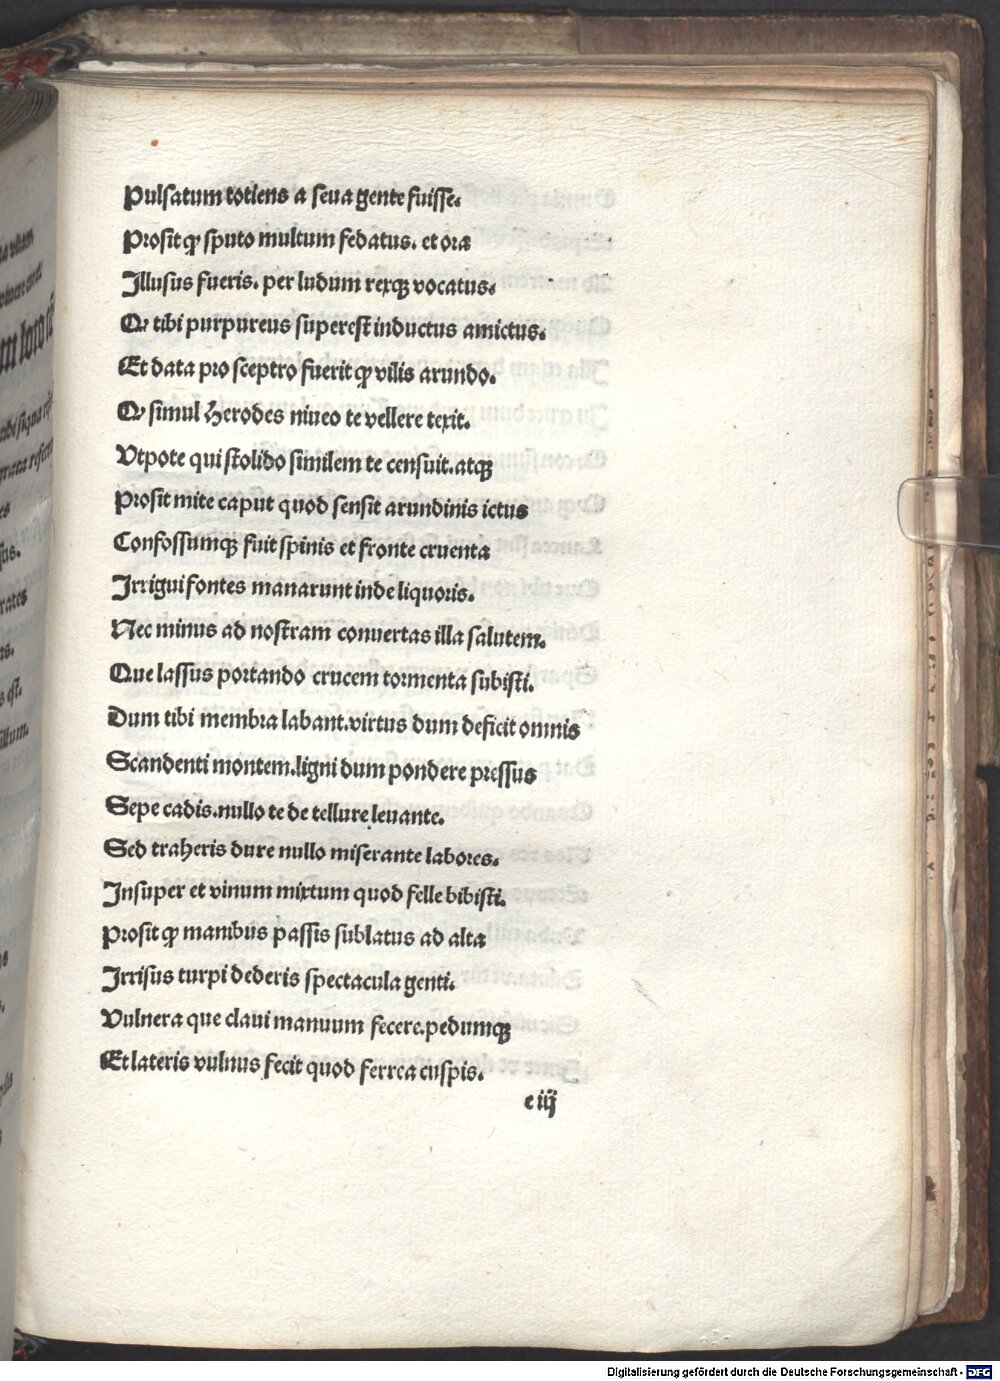 Pulsatum totiens a seua gente fuisse.
Prosit ꝙ sputo multum fedatus. et ora
Illusus fueris. per ludum rexqꝫ vocatus.
Q tibi purpureus superest inductus amictus.
Et data pro sceptro fuerit ꝙ vilis arundo.
Q simul Herodes niueo te vellere texit.
Vtpote qui stolido similem te censuit. atqꝫ
Prosit mite caput quod sensit arundinis ictus
Confossumqꝫ fuit spinis et fronte cruenta
Irrigui fontes manarunt inde liquoris.
Nec minus ad nostram conuertas illa salutem.
Que lassus portando crucem tormenta subisti.
Dum tibi membra labant. virtus dum deficit omnis
Scandenti montem. ligni dum pondere pressus
Sepe cadis. nullo te de tellure leuante.
Sed traheris dure nullo miserante labores.
Insuper et vinum mixtum quod felle bibisti.
Prosit ꝙ manibus passis sublatus ad alta
Irrisus turpi dederis spectacula genti.
Vulnera que claui manuum fecere. pedumqꝫ
Et lateris vulnus fecit quod ferrea cuspis.
e iij
Digitalisierung gefördert durch die Deutsche Forschungsgemeinschaft - DFG